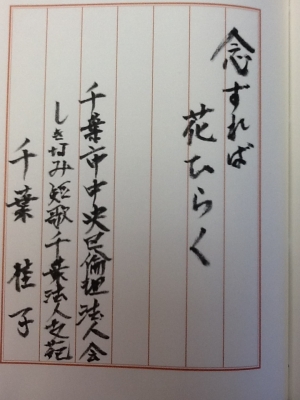 念ずれば
花ひらく
千葉市中央区倫理法人会
しきなみ短歌千葉法人支苑
千葉 桂子